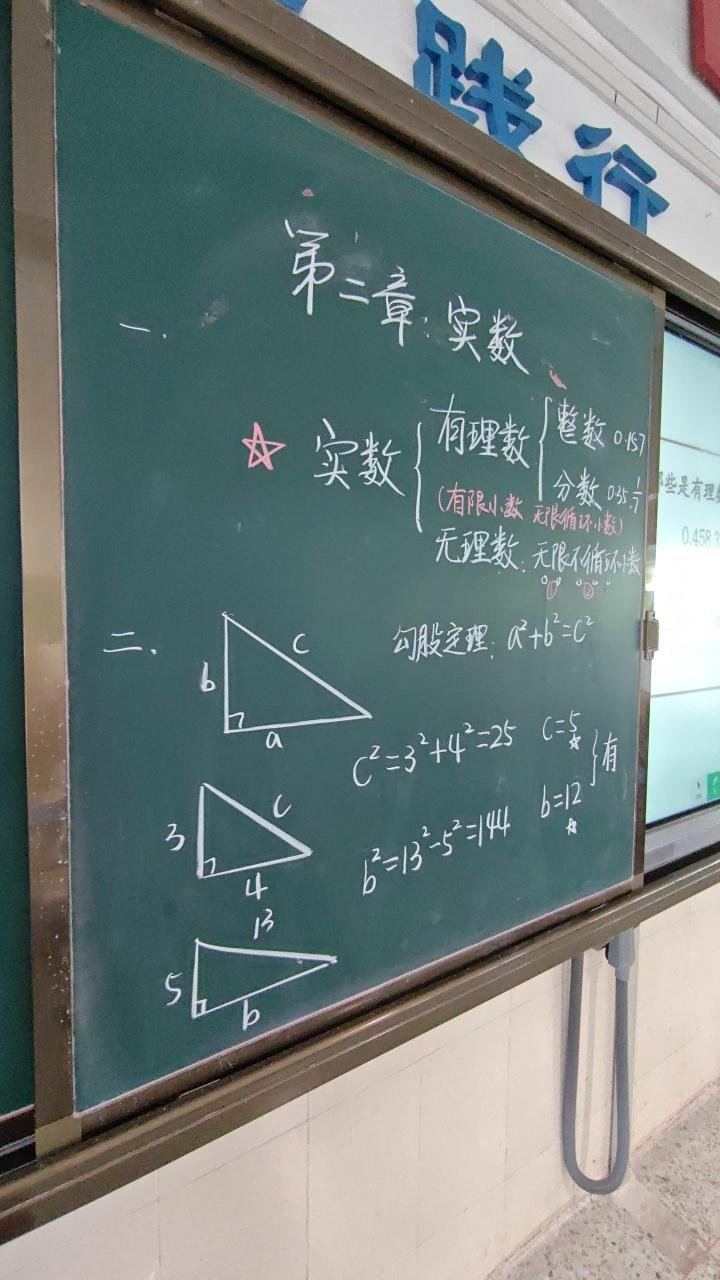 践行
第二章:实数
一.
☆ 实数
有理数
整数 0.157
分数 0.35
(有限小数 无限循环小数)
无理数:无限不循环小数
① ②
那些是有理
0.458 3
二.
b c
a
勾股定理:a²+b²=c²
3 c
4
c²=3²+4²=25 c=5
有
b²=13²-5²=144 b=12
13
5
b